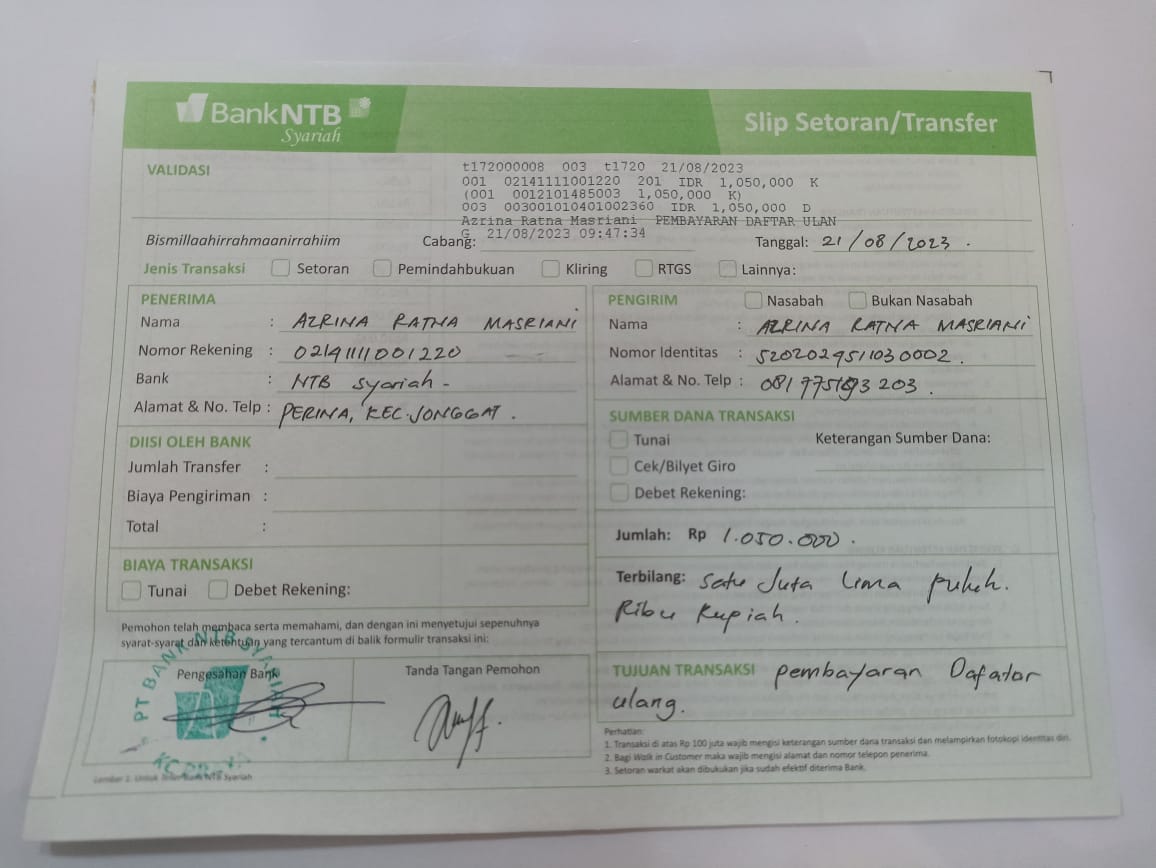 BankNTB
Syariah
Slip Setoran/Transfer
VALIDASI
t172000008 003 t1720 21/08/2023
001 02141111001220 201 IDR 1,050,000 K
(001 0012101485003 1,050,000 K)
003 003001010401002360 IDR 1,050,000 D
Azrina Ratna Masriani PEMBAYARAN DAFTAR ULAN
G 21/08/2023 09:47:34
Bismillaahirrahmaanirrahiim
Cabang:
Tanggal: 21/08/2023.
Jenis Transaksi Setoran Pemindahbukuan Kliring RTGS Lainnya:
PENERIMA
Nama : AZRINA RATNA MASRIANI
Nomor Rekening : 02141111001220
Bank : NTB Syariah -
Alamat & No. Telp : PERINA, KEC. JONGGAT.
DIISI OLEH BANK
Jumlah Transfer :
Biaya Pengiriman :
Total :
BIAYA TRANSAKSI
Tunai Debet Rekening:
Pemohon telah membaca serta memahami, dan dengan ini menyetujui sepenuhnya
syarat-syarat dan ketentuan yang tercantum di balik formulir transaksi ini:
Pengesahan Bank
PT BANK NTB SYARIAH
Tanda Tangan Pemohon
Lembar 1: Untuk Teller Bank NTB Syariah
PENGIRIM Nasabah Bukan Nasabah
Nama : AZRINA RATNA MASRIANI
Nomor Identitas : 5202029511030002.
Alamat & No. Telp :
SUMBER DANA TRANSAKSI
Tunai Keterangan Sumber Dana:
Cek/Bilyet Giro
Debet Rekening:
Jumlah: Rp 1.050.000.
Terbilang: Satu Juta Lima puluh.
Ribu Rupiah.
TUJUAN TRANSAKSI pembayaran Dafatar
ulang.
Perhatian:
1. Transaksi di atas Rp 100 juta wajib mengisi keterangan sumber dana transaksi dan melampirkan fotokopi identitas diri.
2. Bagi Walk in Customer maka wajib mengisi alamat dan nomor telepon penerima.
3. Setoran warkat akan dibukukan jika sudah efektif diterima Bank.